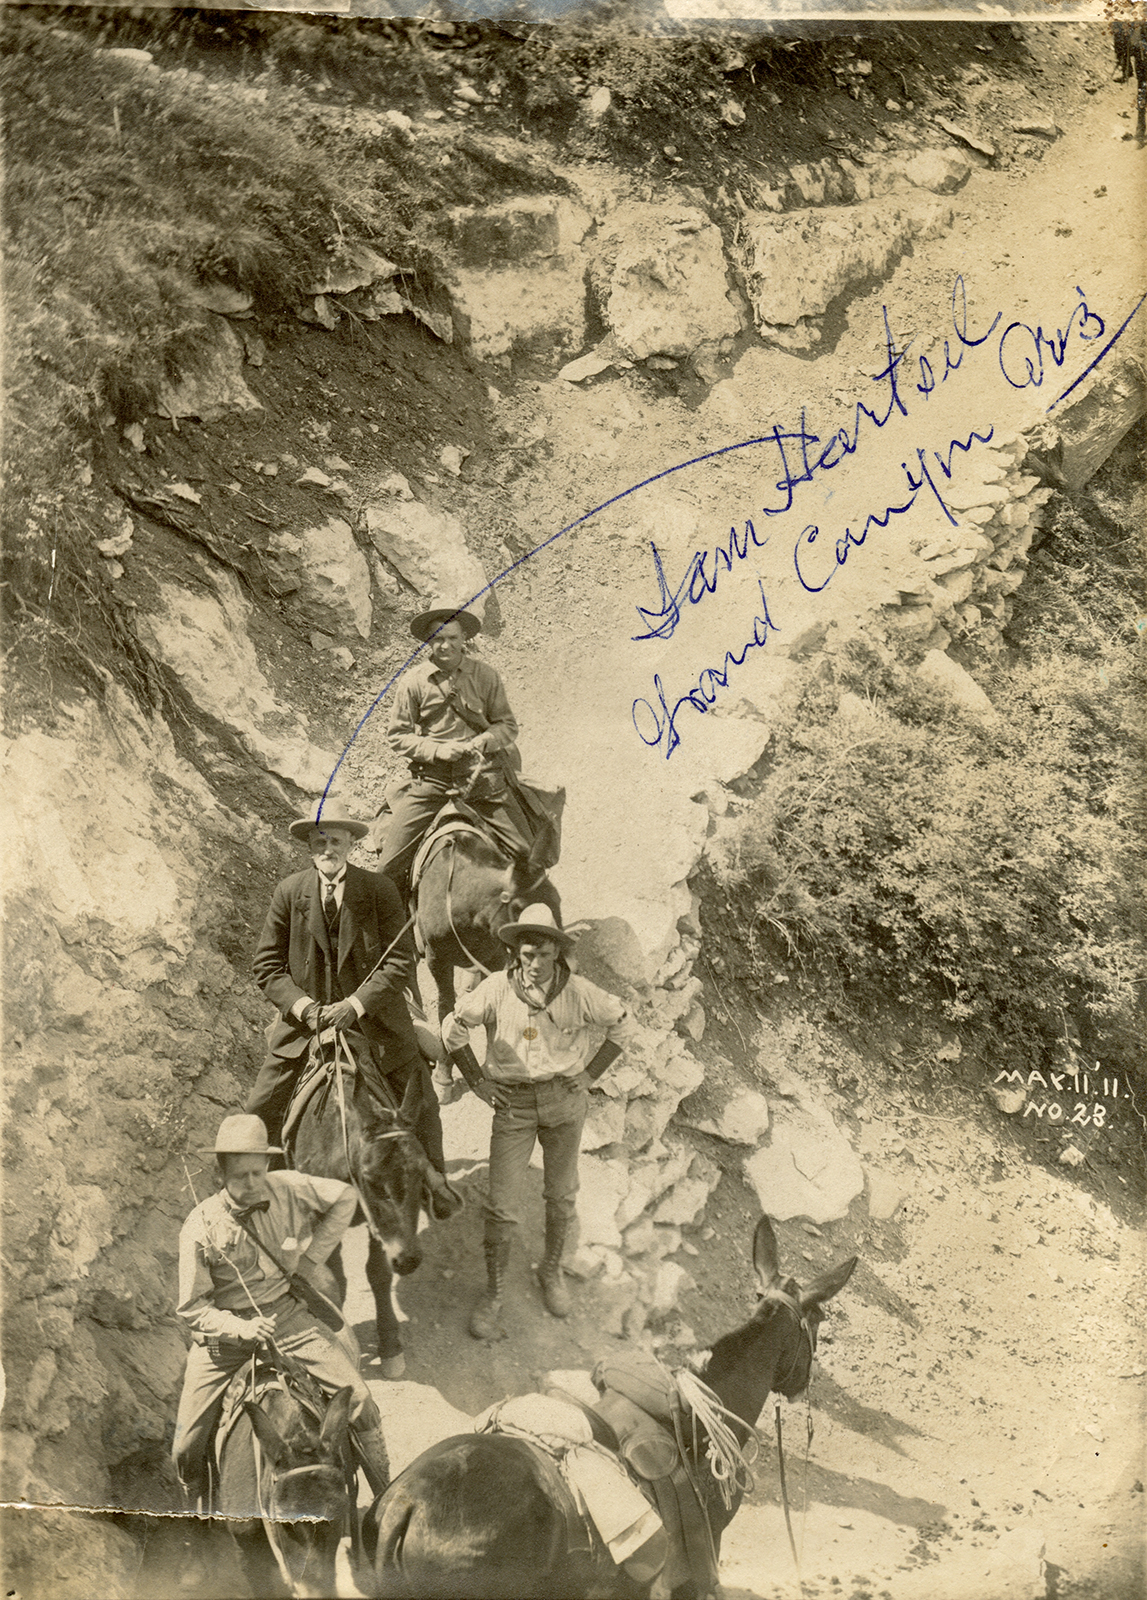 Sam Hartsel
Grand Canyon Ariz
MAY.11.'11.
NO.23.